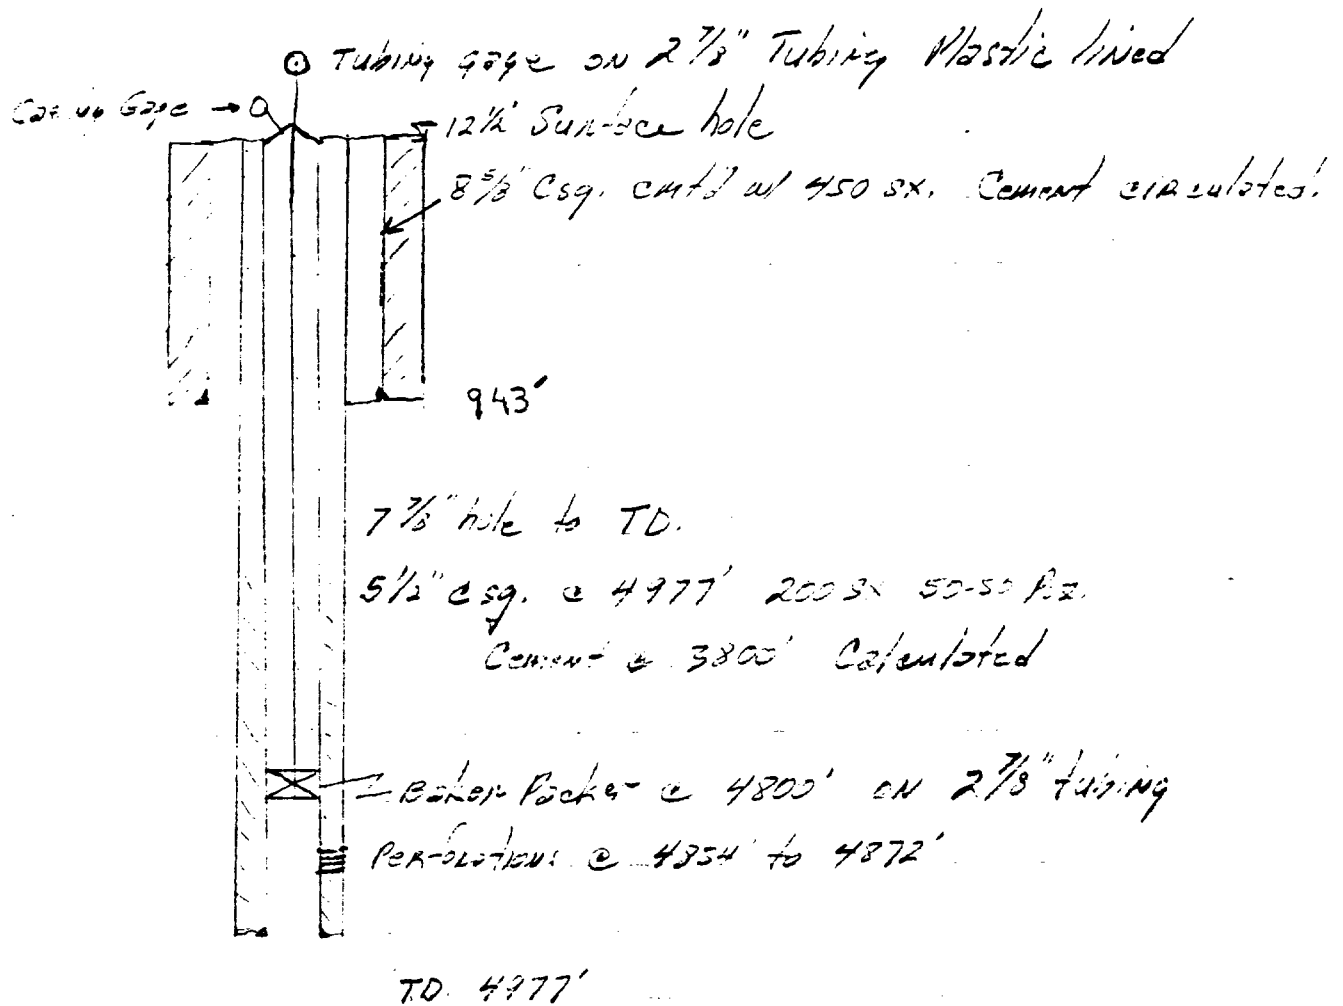 Tubing Gage on 2 7/8" Tubing Plastic lined
Casing Gage →
12 1/4" Surface hole
8 5/8" Csg. cmt'd w/ 450 sx. Cement circulated.
943'
7 7/8" hole to TD.
5 1/2" csg. @ 4977' 200 sx 50-50 Poz.
Cement @ 3800' Calculated
Baker Packer @ 4800' on 2 7/8" tubing
Perforations @ 4854' to 4872'
T.D. 4977'